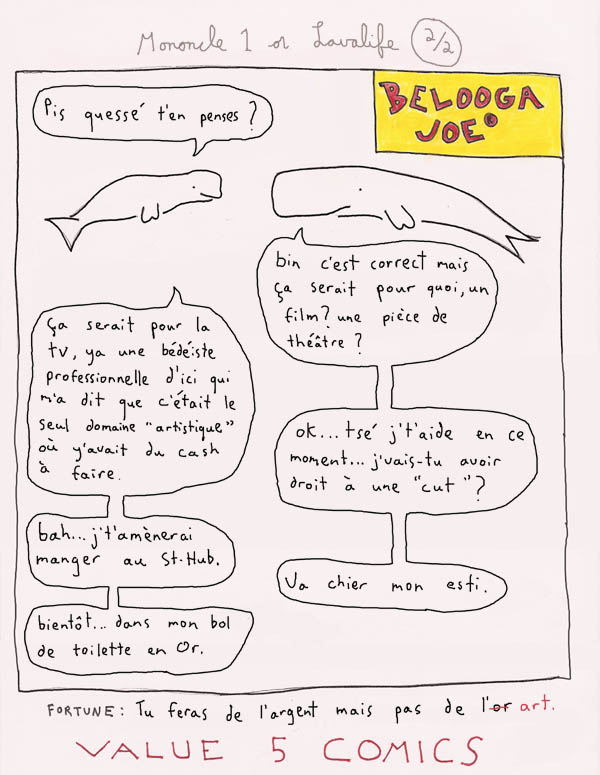 Mononcle 1 or Lavalife 2/2
BELOOGA
JOE
Pis quessé t'en penses ?
bin c'est correct mais
ça serait pour quoi, un
film? une pièce de
théâtre ?
Ça serait pour la
tv, ya une bédéiste
professionnelle d'ici qui
m'a dit que c'était le
seul domaine "artistique"
où y'avait du cash
à faire.
ok... tsé j't'aide en ce
moment... j'vais-tu avoir
droit à une "cut"?
bah... j't'amènerai
manger au St-Hub.
Va chier mon esti.
bientôt... dans mon bol
de toilette en Or.
FORTUNE: Tu feras de l'argent mais pas de l'or art.
VALUE 5 COMICS